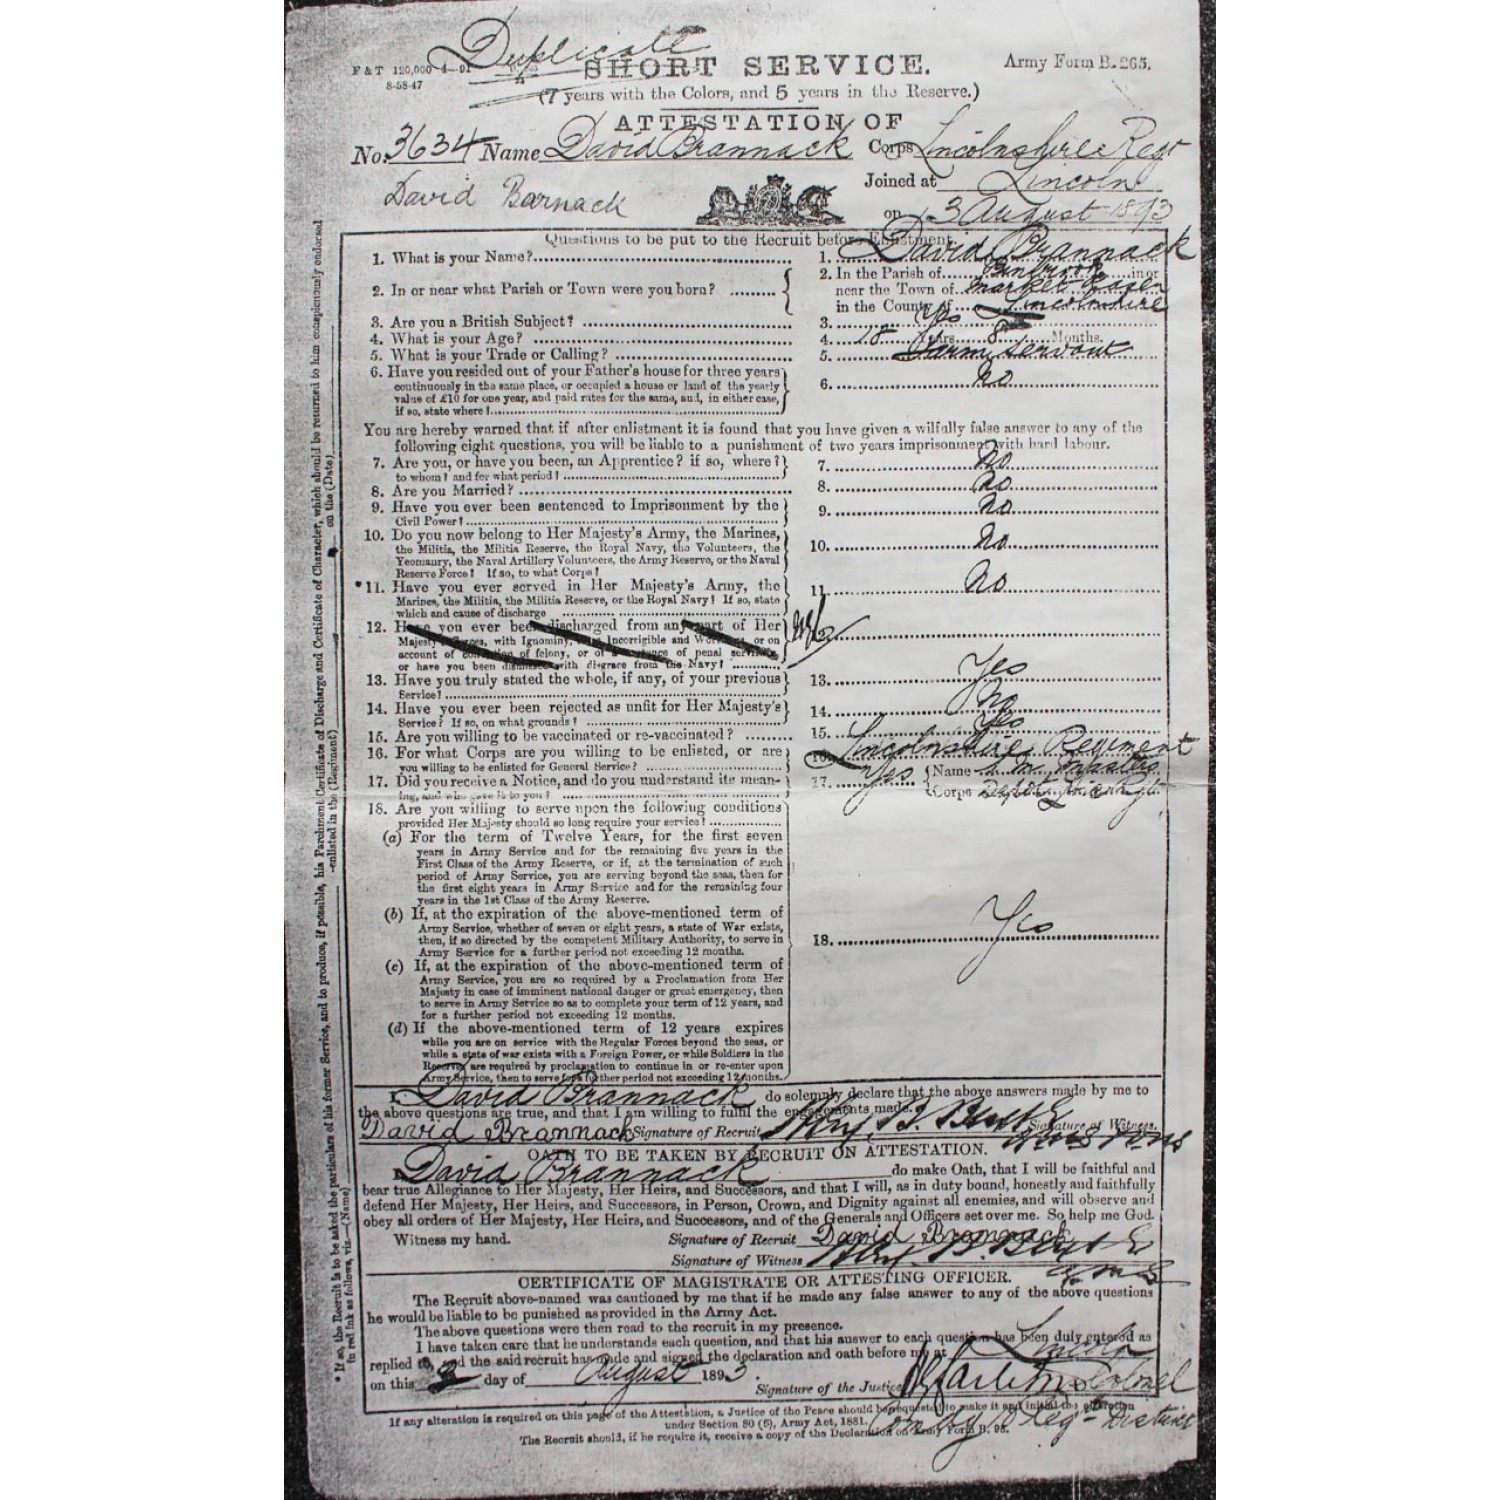 Duplicate
F & T 120,000 4—91
8-58-47
SHORT SERVICE.
Army Form B. 265.
(7 years with the Colors, and 5 years in the Reserve.)
ATTESTATION OF
No. 3634 Name David Brannack Corps Lincolnshire Regt
Joined at Lincoln
David Barnack
on 3 August 1893
Questions to be put to the Recruit before Enlistment.
1. What is your Name? 1. David Brannack
2. In or near what Parish or Town were you born? 2. In the Parish of in or
near the Town of Market Rasen
in the County of Lincolnshire
3. Are you a British Subject? 3. Yes
4. What is your Age? 4. 18 Years 8 Months.
5. What is your Trade or Calling? 5. Farm Servant
6. Have you resided out of your Father's house for three years 6. No
continuously in the same place, or occupied a house or land of the yearly
value of £10 for one year, and paid rates for the same, and, in either case,
if so, state where?
You are hereby warned that if after enlistment it is found that you have given a wilfully false answer to any of the
following eight questions, you will be liable to a punishment of two years imprisonment with hard labour.
7. Are you, or have you been, an Apprentice? if so, where? 7. No
to whom? and for what period?
8. Are you Married? 8. No
9. Have you ever been sentenced to Imprisonment by the 9. No
Civil Power?
10. Do you now belong to Her Majesty's Army, the Marines, 10. No
the Militia, the Militia Reserve, the Royal Navy, the Volunteers, the
Yeomanry, the Naval Artillery Volunteers, the Army Reserve, or the Naval
Reserve Force? If so, to what Corps?
*11. Have you ever served in Her Majesty's Army, the 11. No
Marines, the Militia, the Militia Reserve, or the Royal Navy? If so, state
which and cause of discharge
12. Have you ever been discharged from any part of Her
Majesty's Forces, with Ignominy, Incorrigible and or on
account of conviction of felony, or of a sentence of penal servitude,
or have you been dismissed with disgrace from the Navy?
13. Have you truly stated the whole, if any, of your previous 13. Yes
Service?
14. Have you ever been rejected as unfit for Her Majesty's 14. No
Service? If so, on what grounds?
15. Are you willing to be vaccinated or re-vaccinated? 15. Yes
16. For what Corps are you willing to be enlisted, or are 16. Lincolnshire Regiment
you willing to be enlisted for General Service?
17. Did you receive a Notice, and do you understand its mean- 17. Yes Name Masters
ing, and who gave it to you? Corps
18. Are you willing to serve upon the following conditions
provided Her Majesty should so long require your service?
(a) For the term of Twelve Years, for the first seven
years in Army Service and for the remaining five years in the
First Class of the Army Reserve, or if, at the termination of such
period of Army Service, you are serving beyond the seas, then for
the first eight years in Army Service and for the remaining four
years in the 1st Class of the Army Reserve.
(b) If, at the expiration of the above-mentioned term of
Army Service, whether of seven or eight years, a state of War exists,
then, if so directed by the competent Military Authority, to serve in
Army Service for a further period not exceeding 12 months.
18. Yes
(c) If, at the expiration of the above-mentioned term of
Army Service, you are so required by a Proclamation from Her
Majesty in case of imminent national danger or great emergency, then
to serve in Army Service so as to complete your term of 12 years, and
for a further period not exceeding 12 months.
(d) If the above-mentioned term of 12 years expires
while you are on service with the Regular Forces beyond the seas, or
while a state of war exists with a Foreign Power, or while Soldiers in the
Reserve are required by proclamation to continue in or re-enter upon
Army Service, then to serve for a further period not exceeding 12 months.
I David Brannack do solemnly declare that the above answers made by me to
the above questions are true, and that I am willing to fulfil the engagements made.
David Brannack Signature of Recruit Signature of Witness.
OATH TO BE TAKEN BY RECRUIT ON ATTESTATION.
I David Brannack do make Oath, that I will be faithful and
bear true Allegiance to Her Majesty, Her Heirs, and Successors, and that I will, as in duty bound, honestly and faithfully
defend Her Majesty, Her Heirs, and Successors, in Person, Crown, and Dignity against all enemies, and will observe and
obey all orders of Her Majesty, Her Heirs, and Successors, and of the Generals and Officers set over me. So help me God.
Witness my hand. Signature of Recruit David Brannack
Signature of Witness
CERTIFICATE OF MAGISTRATE OR ATTESTING OFFICER.
The Recruit above-named was cautioned by me that if he made any false answer to any of the above questions
he would be liable to be punished as provided in the Army Act.
The above questions were then read to the recruit in my presence.
I have taken care that he understands each question, and that his answer to each question has been duly entered as
replied to, and the said recruit has made and signed the declaration and oath before me at Lincoln
on this 3 day of August 1893.
Signature of the Justice Colonel
Comdg 10 Regtl District
If any alteration is required on this page of the Attestation, a Justice of the Peace should be requested to make it and initial the alteration
under Section 80 (6), Army Act, 1881.
The Recruit should, if he require it, receive a copy of the Declaration on Army Form B. 98.
* If so, the Recruit is to be asked the particulars of his former Service, and to produce, if possible, his Parchment Certificate of Discharge and Certificate of Character, which should be returned to him conspicuously endorsed
in red ink as follows, viz.—(Name) enlisted in the (Regiment) on the (Date)